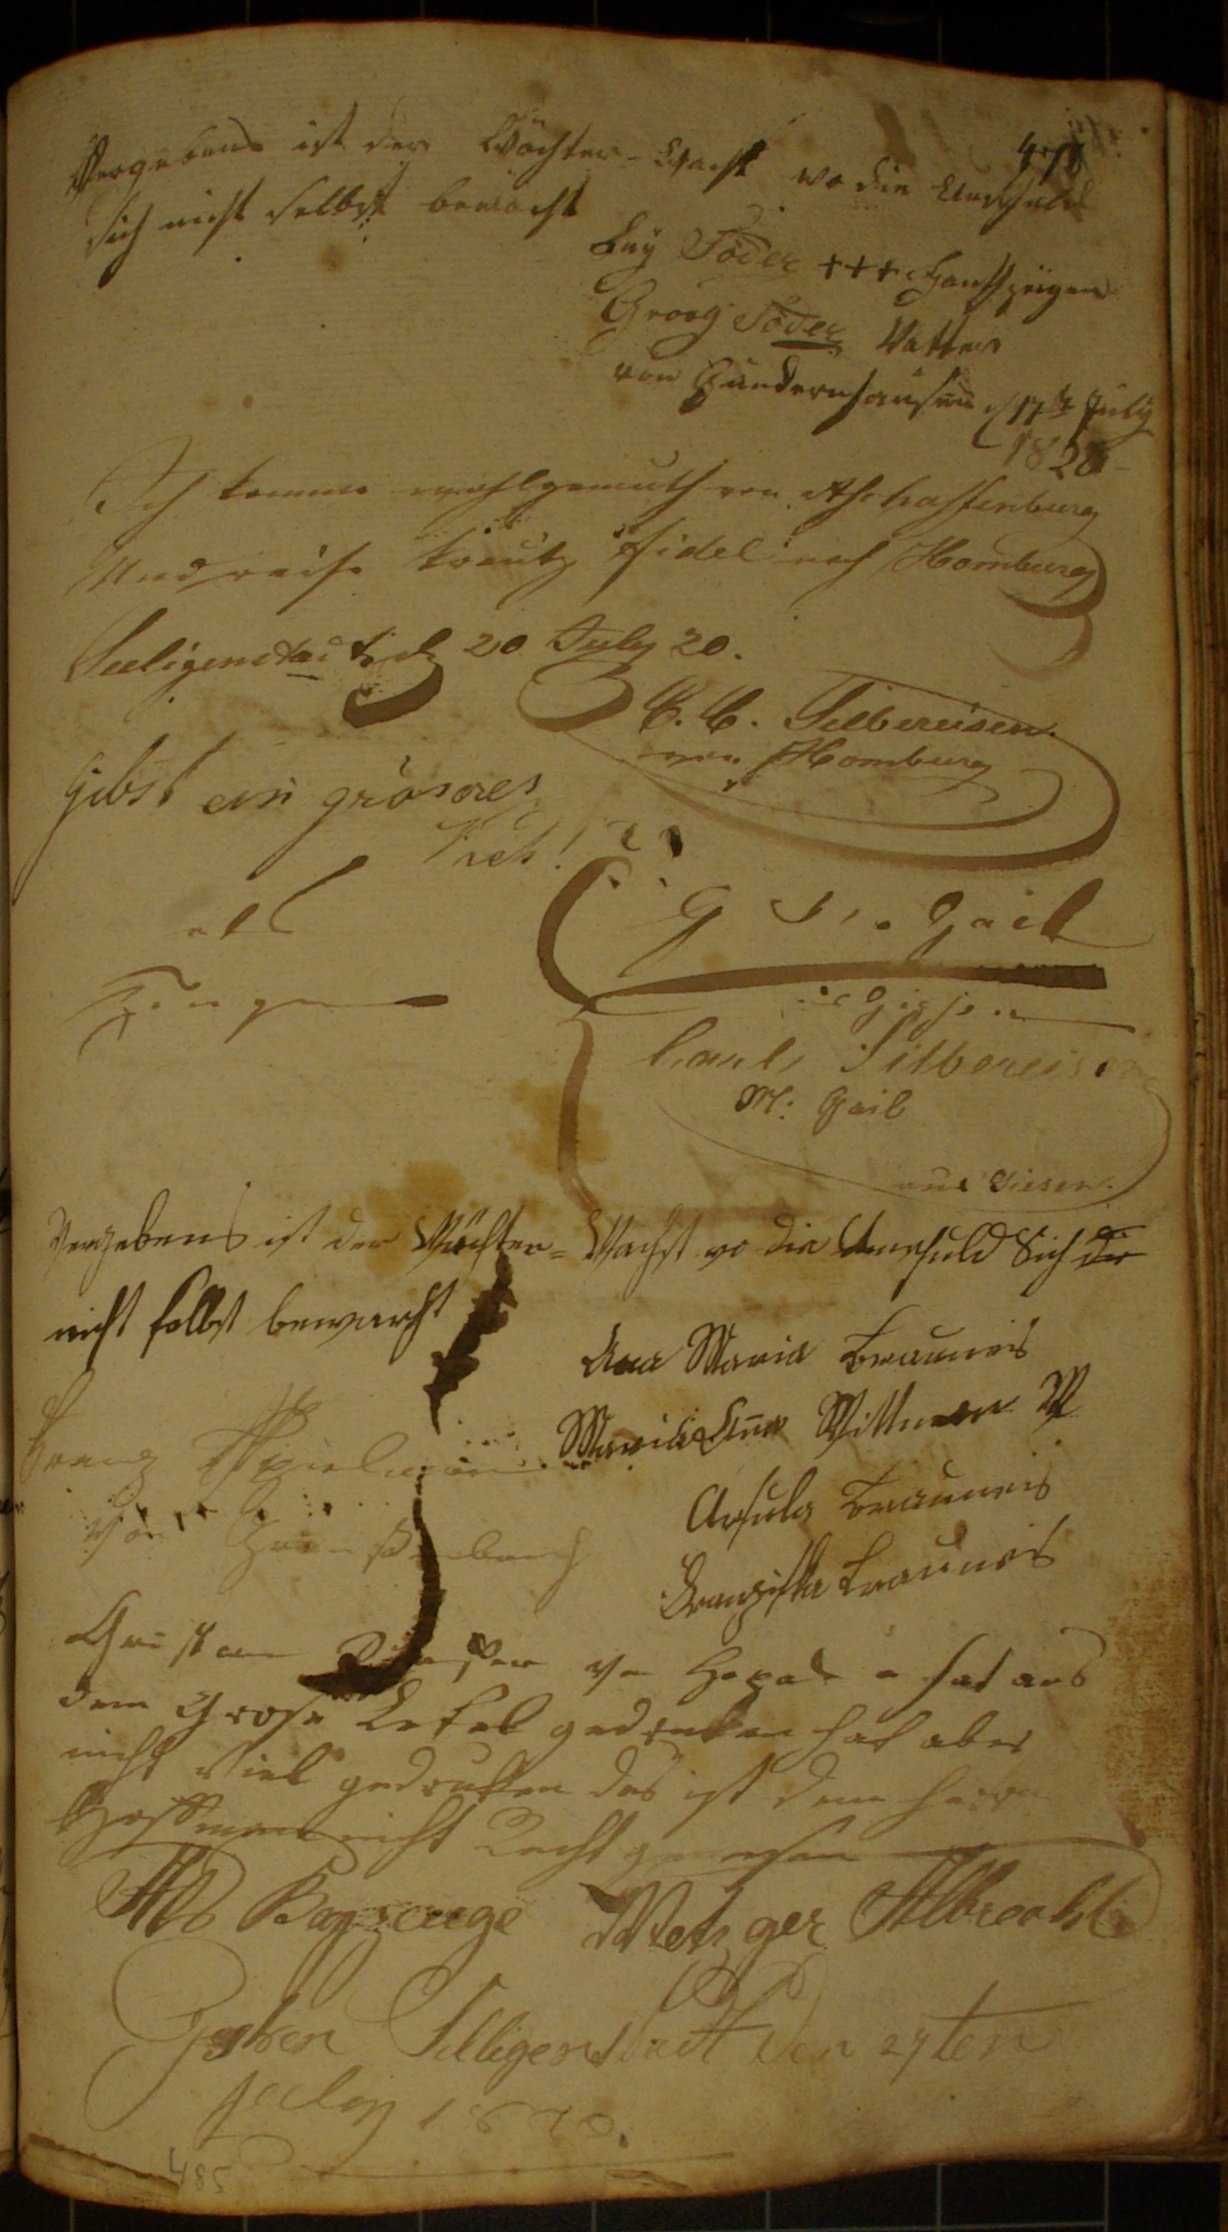 478
Vergebens ist der Wächter-Wacht wo die Unschuld
sich nicht selbst bewacht
Söder +++ Handzeigen
Georg Söder Vatter
von Gundernhausen d 17t July
1828
Ich komme wohlgemuth von Aschaffenburg
Und reise kreutz fidel nach Homburg
Seeligenstadt d 20 July 20.
C. C. Silbereisen.
von Homburg
Gibst ein gröseres
Vieh!
als
G Gail
aus Giesen
Carl Silbereisen
M: Gail
aus Giesen.
Vergebens ist der Wächter=Wacht wo die Unschuld Sich die
nicht selbst bewacht
Ana Maria Brauneis
Maria Ana Wittman W
Franz Spielman
Von
Ursula Brauneis
Franziska Brauneis
Christian von hat aus
dem Grose Lefel gedrunken hat aber
nicht viel gedrunken das ist dem Herrn
Hoffman nicht Recht gewesen
Als Bayzeuge Metzger Albrecht
Geschen Selligenstadt den 27ten
July 1820.
485